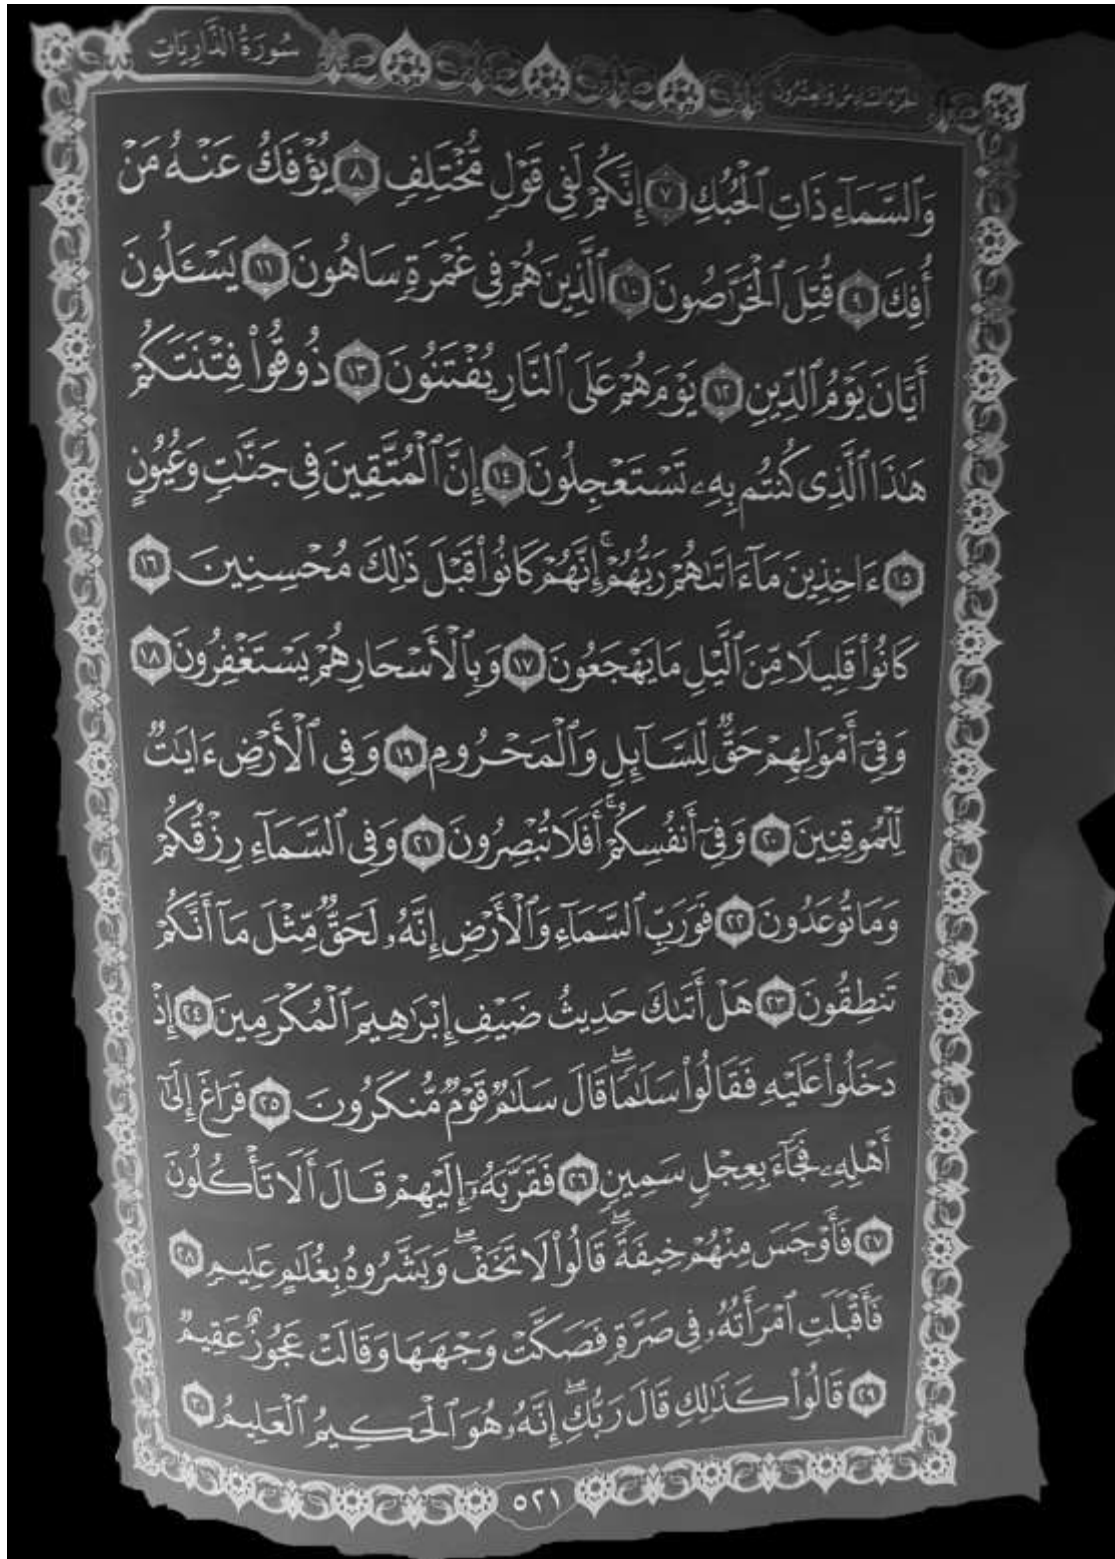 الجزء السادس والعشرون
سُورَةُ الذَّارِيَاتِ
وَٱلسَّمَآءِ ذَاتِ ٱلْحُبُكِ ٧ إِنَّكُمْ لَفِى قَوْلٍ مُّخْتَلِفٍ ٨ يُؤْفَكُ عَنْهُ مَنْ
أُفِكَ ٩ قُتِلَ ٱلْخَرَّٰصُونَ ١٠ ٱلَّذِينَ هُمْ فِى غَمْرَةٍ سَاهُونَ ١١ يَسْـَٔلُونَ
أَيَّانَ يَوْمُ ٱلدِّينِ ١٢ يَوْمَ هُمْ عَلَى ٱلنَّارِ يُفْتَنُونَ ١٣ ذُوقُوا۟ فِتْنَتَكُمْ
هَٰذَا ٱلَّذِى كُنتُم بِهِۦ تَسْتَعْجِلُونَ ١٤ إِنَّ ٱلْمُتَّقِينَ فِى جَنَّٰتٍ وَعُيُونٍ
١٥ ءَاخِذِينَ مَآ ءَاتَىٰهُمْ رَبُّهُمْ ۚ إِنَّهُمْ كَانُوا۟ قَبْلَ ذَٰلِكَ مُحْسِنِينَ ١٦
كَانُوا۟ قَلِيلًا مِّنَ ٱلَّيْلِ مَا يَهْجَعُونَ ١٧ وَبِٱلْأَسْحَارِ هُمْ يَسْتَغْفِرُونَ ١٨
وَفِىٓ أَمْوَٰلِهِمْ حَقٌّ لِّلسَّآئِلِ وَٱلْمَحْرُومِ ١٩ وَفِى ٱلْأَرْضِ ءَايَٰتٌ
لِّلْمُوقِنِينَ ٢٠ وَفِىٓ أَنفُسِكُمْ ۚ أَفَلَا تُبْصِرُونَ ٢١ وَفِى ٱلسَّمَآءِ رِزْقُكُمْ
وَمَا تُوعَدُونَ ٢٢ فَوَرَبِّ ٱلسَّمَآءِ وَٱلْأَرْضِ إِنَّهُۥ لَحَقٌّ مِّثْلَ مَآ أَنَّكُمْ
تَنطِقُونَ ٢٣ هَلْ أَتَىٰكَ حَدِيثُ ضَيْفِ إِبْرَٰهِيمَ ٱلْمُكْرَمِينَ ٢٤ إِذْ
دَخَلُوا۟ عَلَيْهِ فَقَالُوا۟ سَلَٰمًا ۖ قَالَ سَلَٰمٌ قَوْمٌ مُّنكَرُونَ ٢٥ فَرَاغَ إِلَىٰٓ
أَهْلِهِۦ فَجَآءَ بِعِجْلٍ سَمِينٍ ٢٦ فَقَرَّبَهُۥٓ إِلَيْهِمْ قَالَ أَلَا تَأْكُلُونَ
٢٧ فَأَوْجَسَ مِنْهُمْ خِيفَةً ۖ قَالُوا۟ لَا تَخَفْ ۖ وَبَشَّرُوهُ بِغُلَٰمٍ عَلِيمٍ ٢٨
فَأَقْبَلَتِ ٱمْرَأَتُهُۥ فِى صَرَّةٍ فَصَكَّتْ وَجْهَهَا وَقَالَتْ عَجُوزٌ عَقِيمٌ
٢٩ قَالُوا۟ كَذَٰلِكِ قَالَ رَبُّكِ ۖ إِنَّهُۥ هُوَ ٱلْحَكِيمُ ٱلْعَلِيمُ ٣٠
٥٢١